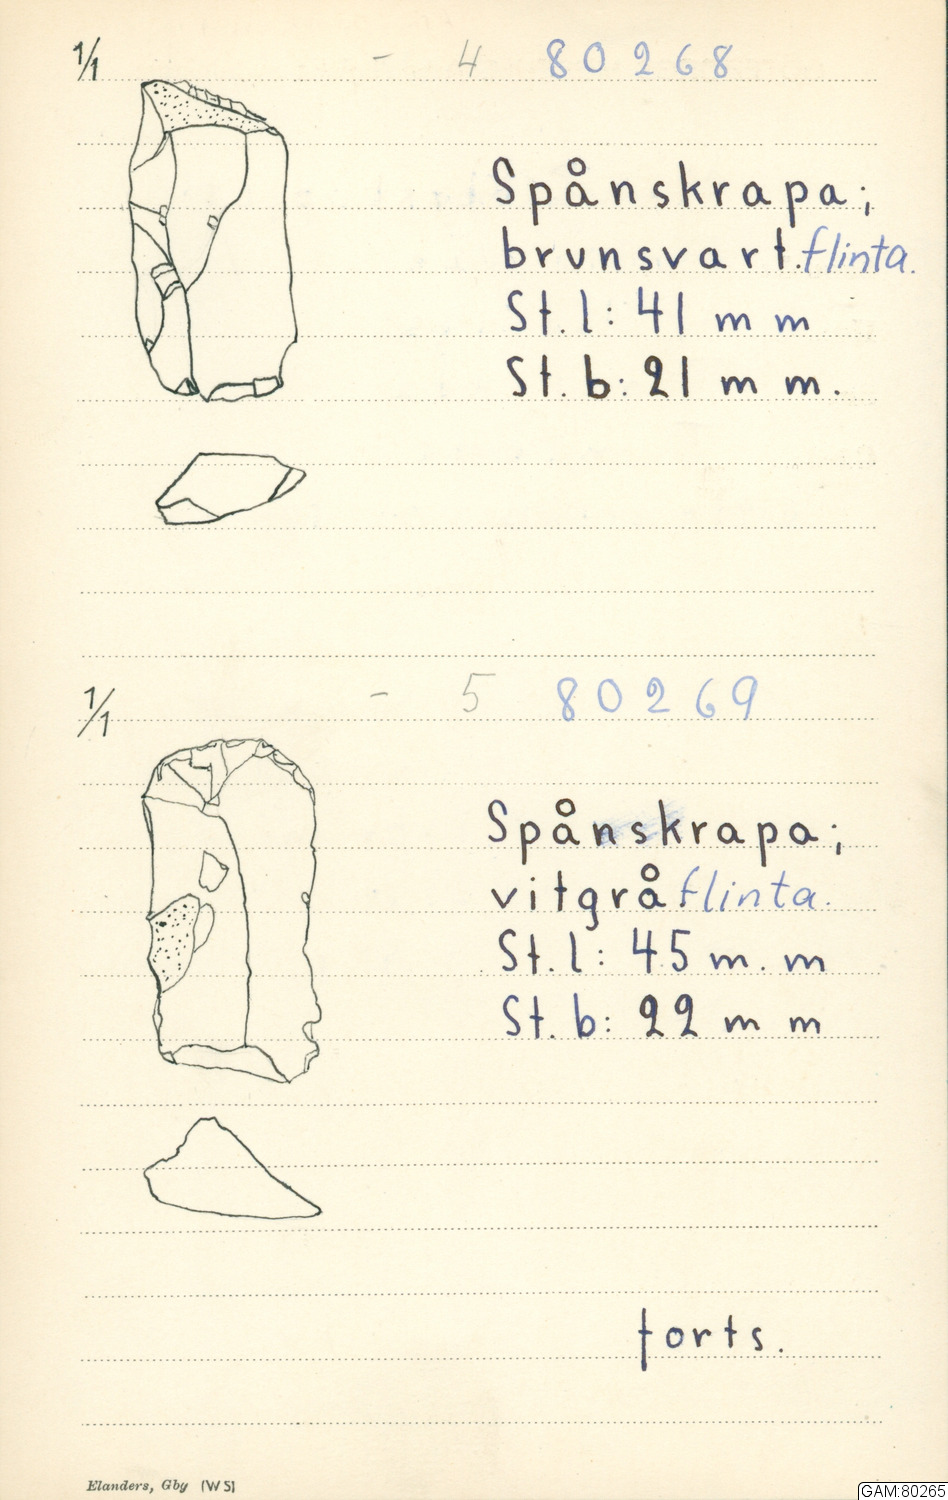 1/1 - 4 80268
Spånskrapa;
brunsvart. flinta.
St. l: 41 mm
St. b: 21 mm.
1/1 - 5 80269
Spånskrapa;
vitgrå flinta.
St. l: 45 mm
St. b: 22 mm
forts.
Elanders, Gby (WS)
GAM:80265